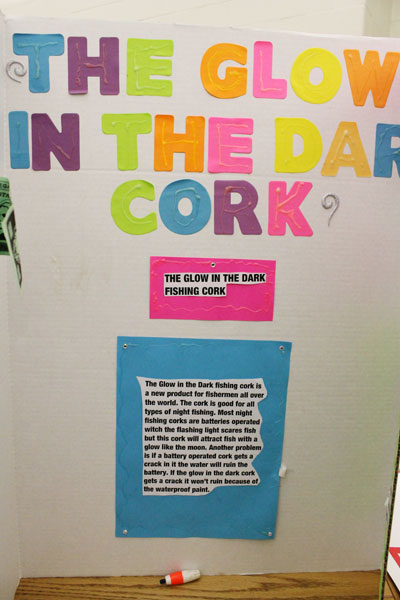 THE GLOW
IN THE DARK
CORK
THE GLOW IN THE DARK
FISHING CORK
The Glow in the Dark fishing cork is
a new product for fishermen all over
the world. The cork is good for all
types of night fishing. Most night
fishing corks are batteries operated
witch the flashing light scares fish
but this cork will attract fish with a
glow like the moon. Another problem
is if a battery operated cork gets a
crack in it the water will ruin the
battery. If the glow in the dark cork
gets a crack it won't ruin because of
the waterproof paint.